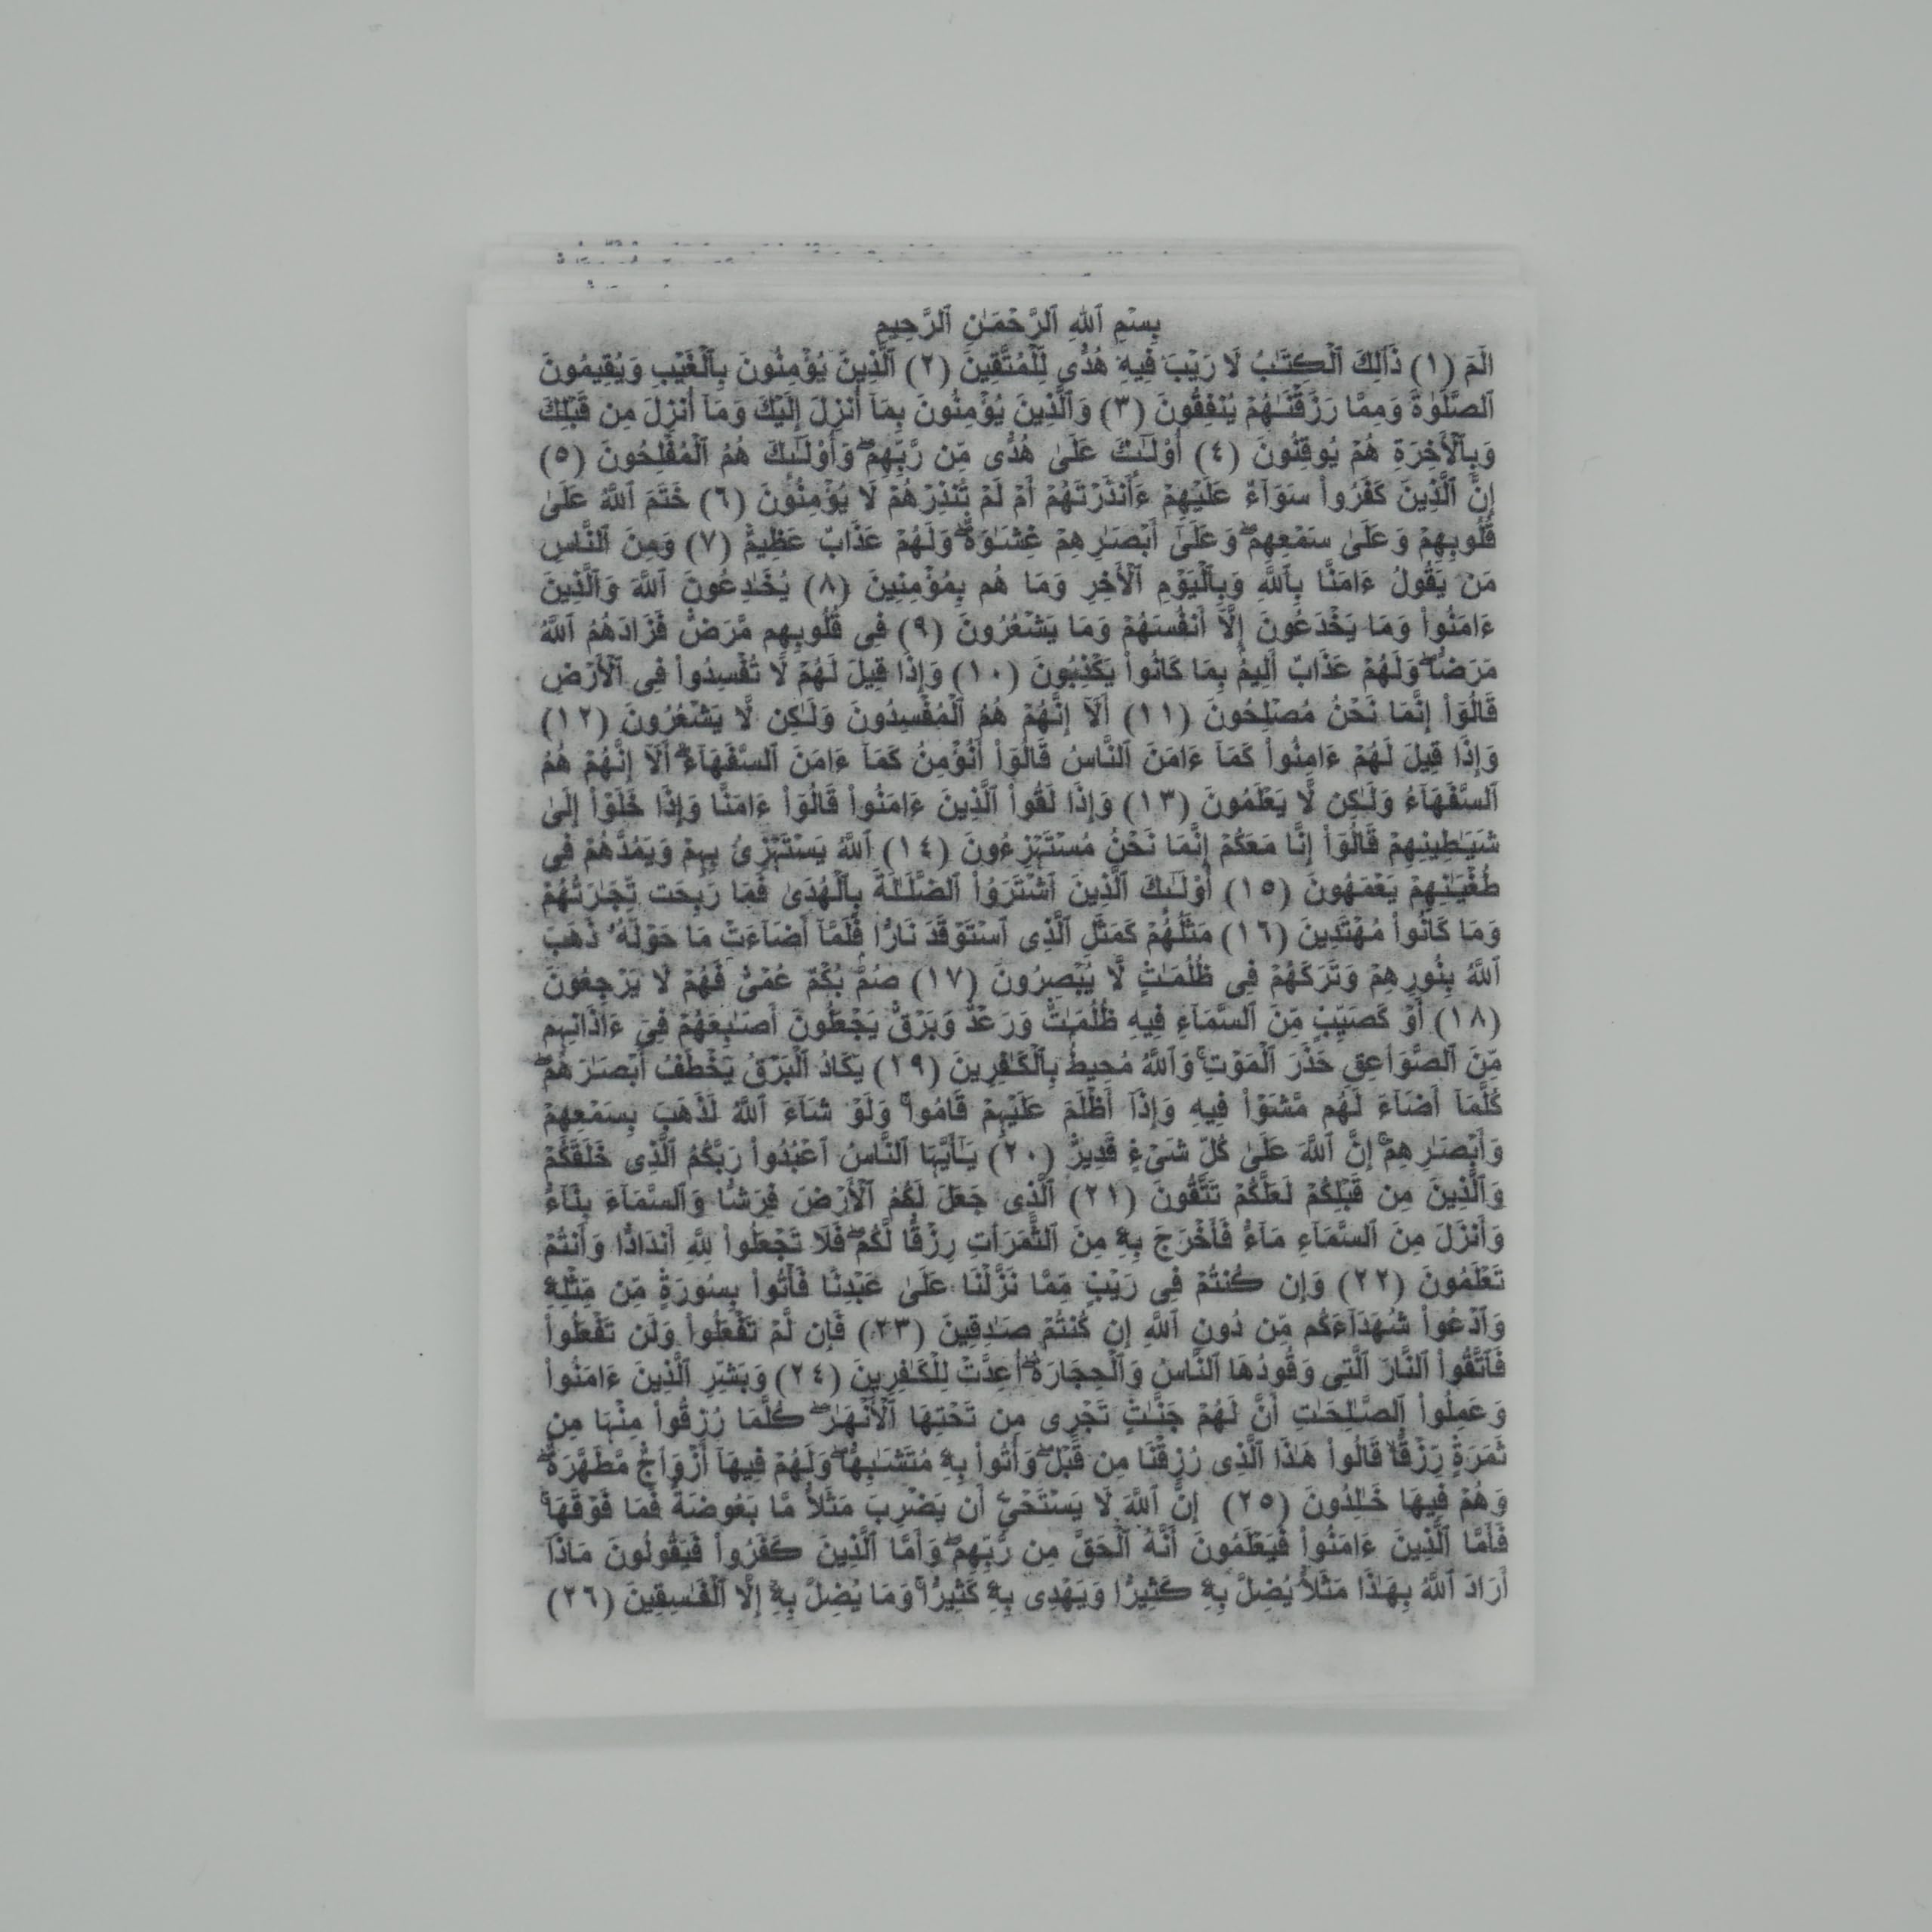 بِسْمِ ٱللَّهِ ٱلرَّحْمَـٰنِ ٱلرَّحِيمِ
الٓمٓ (١) ذَٲلِكَ ٱلْڪِتَـٰبُ لَا رَيْبَ‌ۛ فِيهِ‌ۛ هُدًى لِّلْمُتَّقِينَ (٢) ٱلَّذِينَ يُؤْمِنُونَ بِٱلْغَيْبِ وَيُقِيمُونَ
ٱلصَّلَوٰةَ وَمِمَّا رَزَقْنَـٰهُمْ يُنفِقُونَ (٣) وَٱلَّذِينَ يُؤْمِنُونَ بِمَآ أُنزِلَ إِلَيْكَ وَمَآ أُنزِلَ مِن قَبْلِكَ
وَبِٱلْأَخِرَةِ هُمْ يُوقِنُونَ (٤) أُوْلَـٰٓٮِٕكَ عَلَىٰ هُدًى مِّن رَّبِّهِمْ‌ۖ وَأُوْلَـٰٓٮِٕكَ هُمُ ٱلْمُفْلِحُونَ (٥)
إِنَّ ٱلَّذِينَ كَفَرُواْ سَوَآءٌ عَلَيْهِمْ ءَأَنذَرْتَهُمْ أَمْ لَمْ تُنذِرْهُمْ لَا يُؤْمِنُونَ (٦) خَتَمَ ٱللَّهُ عَلَىٰ
قُلُوبِهِمْ وَعَلَىٰ سَمْعِهِمْ‌ۖ وَعَلَىٰٓ أَبْصَـٰرِهِمْ غِشَـٰوَةٌ‌ۖ وَلَهُمْ عَذَابٌ عَظِيمٌ (٧) وَمِنَ ٱلنَّاسِ
مَن يَقُولُ ءَامَنَّا بِٱللَّهِ وَبِٱلْيَوْمِ ٱلْأَخِرِ وَمَا هُم بِمُؤْمِنِينَ (٨) يُخَـٰدِعُونَ ٱللَّهَ وَٱلَّذِينَ
ءَامَنُواْ وَمَا يَخْدَعُونَ إِلَّآ أَنفُسَهُمْ وَمَا يَشْعُرُونَ (٩) فِى قُلُوبِهِم مَّرَضٌ فَزَادَهُمُ ٱللَّهُ
مَرَضًا‌ۖ وَلَهُمْ عَذَابٌ أَلِيمٌ بِمَا كَانُواْ يَكْذِبُونَ (١٠) وَإِذَا قِيلَ لَهُمْ لَا تُفْسِدُواْ فِى ٱلْأَرْضِ
قَالُوٓاْ إِنَّمَا نَحْنُ مُصْلِحُونَ (١١) أَلَآ إِنَّهُمْ هُمُ ٱلْمُفْسِدُونَ وَلَـٰكِن لَّا يَشْعُرُونَ (١٢)
وَإِذَا قِيلَ لَهُمْ ءَامِنُواْ كَمَآ ءَامَنَ ٱلنَّاسُ قَالُوٓاْ أَنُؤْمِنُ كَمَآ ءَامَنَ ٱلسُّفَهَآءُ‌ۗ أَلَآ إِنَّهُمْ هُمُ
ٱلسُّفَهَآءُ وَلَـٰكِن لَّا يَعْلَمُونَ (١٣) وَإِذَا لَقُواْ ٱلَّذِينَ ءَامَنُواْ قَالُوٓاْ ءَامَنَّا وَإِذَا خَلَوْاْ إِلَىٰ
شَيَـٰطِينِهِمْ قَالُوٓاْ إِنَّا مَعَكُمْ إِنَّمَا نَحْنُ مُسْتَهْزِءُونَ (١٤) ٱللَّهُ يَسْتَهْزِئُ بِهِمْ وَيَمُدُّهُمْ فِى
طُغْيَـٰنِهِمْ يَعْمَهُونَ (١٥) أُوْلَـٰٓٮِٕكَ ٱلَّذِينَ ٱشْتَرَوُاْ ٱلضَّلَـٰلَةَ بِٱلْهُدَىٰ فَمَا رَبِحَت تِّجَـٰرَتُهُمْ
وَمَا كَانُواْ مُهْتَدِينَ (١٦) مَثَلُهُمْ كَمَثَلِ ٱلَّذِى ٱسْتَوْقَدَ نَارًا فَلَمَّآ أَضَآءَتْ مَا حَوْلَهُ ۥ ذَهَبَ
ٱللَّهُ بِنُورِهِمْ وَتَرَكَهُمْ فِى ظُلُمَـٰتٍ لَّا يُبْصِرُونَ (١٧) صُمُّۢ بُكْمٌ عُمْىٌ فَهُمْ لَا يَرْجِعُونَ
(١٨) أَوْ كَصَيِّبٍ مِّنَ ٱلسَّمَآءِ فِيهِ ظُلُمَـٰتٌ وَرَعْدٌ وَبَرْقٌ يَجْعَلُونَ أَصَـٰبِعَهُمْ فِىٓ ءَاذَانِہِم
مِّنَ ٱلصَّوَٲعِقِ حَذَرَ ٱلْمَوْتِ‌ۚ وَٱللَّهُ مُحِيطٌ بِٱلْكَـٰفِرِينَ (١٩) يَكَادُ ٱلْبَرْقُ يَخْطَفُ أَبْصَـٰرَهُمْ‌ۖ
كُلَّمَآ أَضَآءَ لَهُم مَّشَوْاْ فِيهِ وَإِذَآ أَظْلَمَ عَلَيْہِمْ قَامُواْ‌ۚ وَلَوْ شَآءَ ٱللَّهُ لَذَهَبَ بِسَمْعِهِمْ
وَأَبْصَـٰرِهِمْ‌ۚ إِنَّ ٱللَّهَ عَلَىٰ كُلِّ شَىْءٍ قَدِيرٌ (٢٠) يَـٰٓأَيُّہَا ٱلنَّاسُ ٱعْبُدُواْ رَبَّكُمُ ٱلَّذِى خَلَقَكُمْ
وَٱلَّذِينَ مِن قَبْلِكُمْ لَعَلَّكُمْ تَتَّقُونَ (٢١) ٱلَّذِى جَعَلَ لَكُمُ ٱلْأَرْضَ فِرَٲشًا وَٱلسَّمَآءَ بِنَآءً
وَأَنزَلَ مِنَ ٱلسَّمَآءِ مَآءً فَأَخْرَجَ بِهِۦ مِنَ ٱلثَّمَرَٲتِ رِزْقًا لَّكُمْ‌ۖ فَلَا تَجْعَلُواْ لِلَّهِ أَندَادًا وَأَنتُمْ
تَعْلَمُونَ (٢٢) وَإِن ڪُنتُمْ فِى رَيْبٍ مِّمَّا نَزَّلْنَا عَلَىٰ عَبْدِنَا فَأْتُواْ بِسُورَةٍ مِّن مِّثْلِهِۦ
وَٱدْعُواْ شُهَدَآءَكُم مِّن دُونِ ٱللَّهِ إِن كُنتُمْ صَـٰدِقِينَ (٢٣) فَإِن لَّمْ تَفْعَلُواْ وَلَن تَفْعَلُواْ
فَٱتَّقُواْ ٱلنَّارَ ٱلَّتِى وَقُودُهَا ٱلنَّاسُ وَٱلْحِجَارَةُ‌ۖ أُعِدَّتْ لِلْكَـٰفِرِينَ (٢٤) وَبَشِّرِ ٱلَّذِينَ ءَامَنُواْ
وَعَمِلُواْ ٱلصَّـٰلِحَـٰتِ أَنَّ لَهُمْ جَنَّـٰتٍ تَجْرِى مِن تَحْتِهَا ٱلْأَنْهَـٰرُ‌ۖ ڪُلَّمَا رُزِقُواْ مِنْہَا مِن
ثَمَرَةٍ رِّزْقًا‌ۙ قَالُواْ هَـٰذَا ٱلَّذِى رُزِقْنَا مِن قَبْلُ‌ۖ وَأُتُواْ بِهِۦ مُتَشَـٰبِهًا‌ۖ وَلَهُمْ فِيهَآ أَزْوَٲجٌ مُّطَهَّرَةٌ‌ۖ
وَهُمْ فِيهَا خَـٰلِدُونَ (٢٥) إِنَّ ٱللَّهَ لَا يَسْتَحْىِۦٓ أَن يَضْرِبَ مَثَلاً مَّا بَعُوضَةً فَمَا فَوْقَهَا‌ۚ
فَأَمَّا ٱلَّذِينَ ءَامَنُواْ فَيَعْلَمُونَ أَنَّهُ ٱلْحَقُّ مِن رَّبِّهِمْ‌ۖ وَأَمَّا ٱلَّذِينَ ڪَفَرُواْ فَيَقُولُونَ مَاذَآ
أَرَادَ ٱللَّهُ بِهَـٰذَا مَثَلاً‌ۘ يُضِلُّ بِهِۦ ڪَثِيرًا وَيَهْدِى بِهِۦ كَثِيرًا‌ۚ وَمَا يُضِلُّ بِهِۦٓ إِلَّا ٱلْفَـٰسِقِينَ (٢٦)